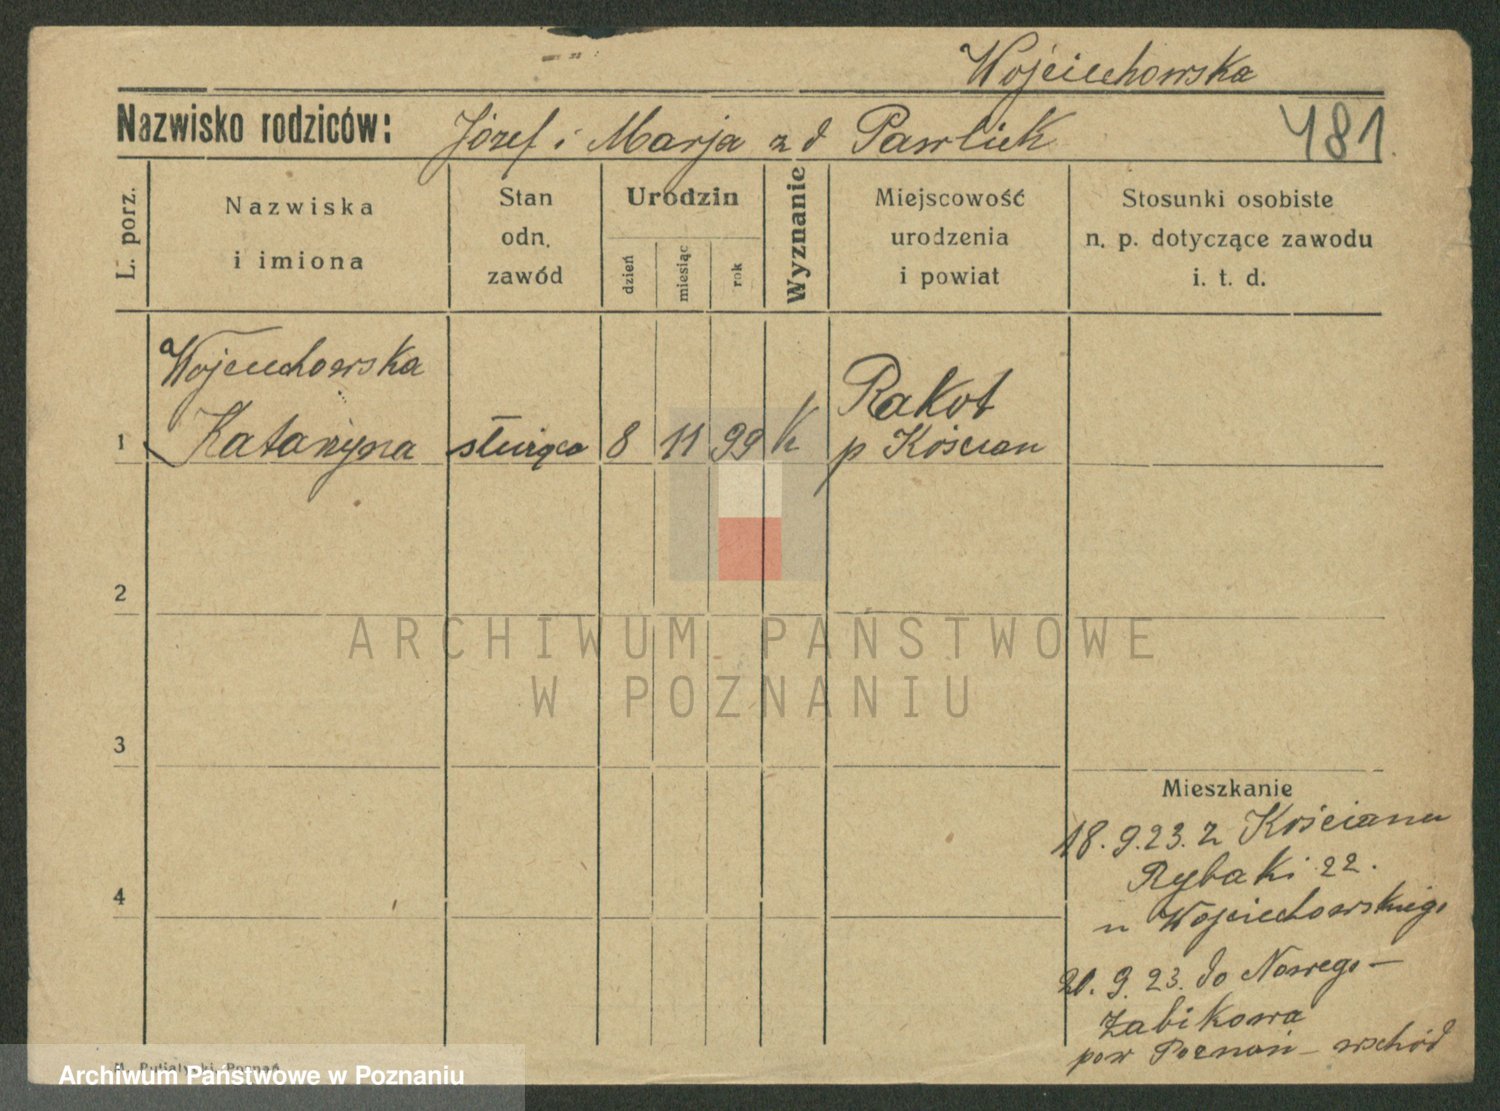 Wojciechowska
Nazwisko rodziców: Józef i Marja z d Pawlick
481
L. porz.
Nazwiska
i imiona
Stan
odn.
zawód
Urodzin
dzień
miesiąc
rok
Wyznanie
Miejscowość
urodzenia
i powiat
Stosunki osobiste
n. p. dotyczące zawodu
i. t. d.
Wojciechowska
1 Katarzyna służąca 8 11 99 k Rakot
p Kościan
2
ARCHIWUM PAŃSTWOWE
W POZNANIU
3
Mieszkanie
18. 9. 23. z Kościana
Rybaki 22.
u Wojciechowskiego
4
20. 9. 23. do Nowego-
Żabikowa
pow Poznań - wschód
Poznań
Archiwum Państwowe w Poznaniu